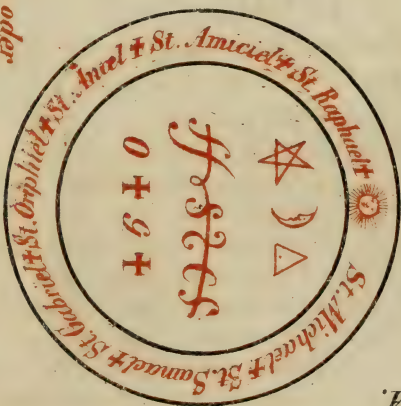 oder
St. Michael ‡ St. Samael ‡ St. Gabriel ‡ St. Omphiel ‡ St. ‡ St. Amiciel ‡ St Raphael ‡
0 + 9 +